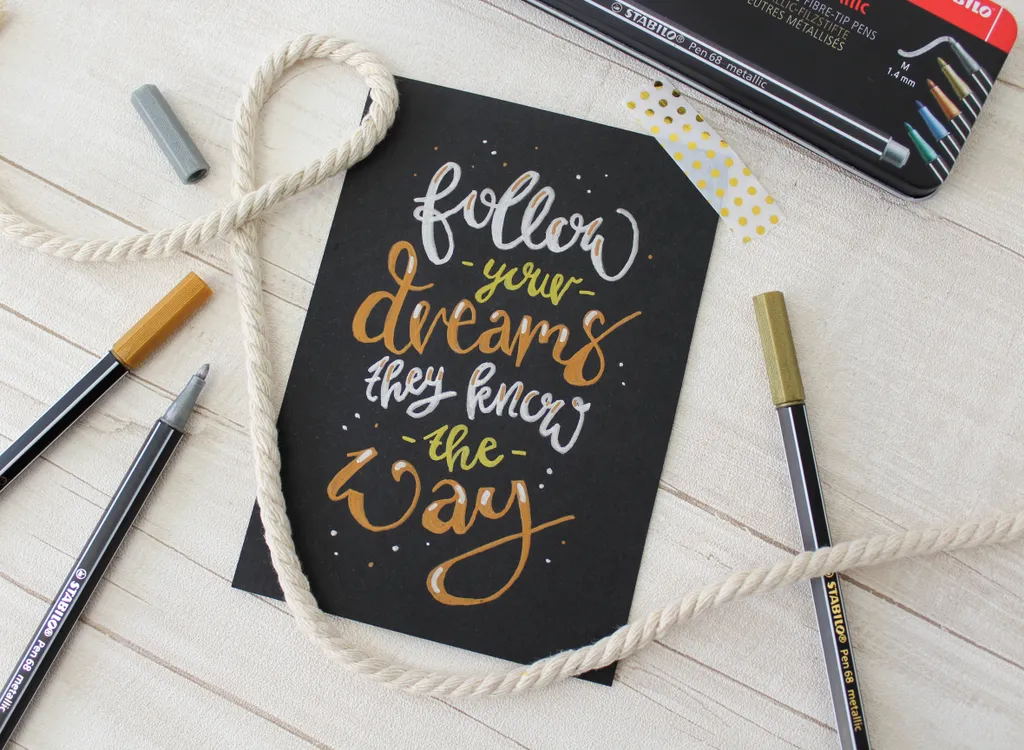 follow
- your -
dreams
they know
- the -
way
STABILO® Pen 68 metallic
FIBRE-TIP PENS
METALLIC-FILZSTIFTE
FEUTRES MÉTALLISÉS
M
1.4 mm
STABILO®
STABILO® Pen 68 metallic
STABILO® Pen 68 metallic